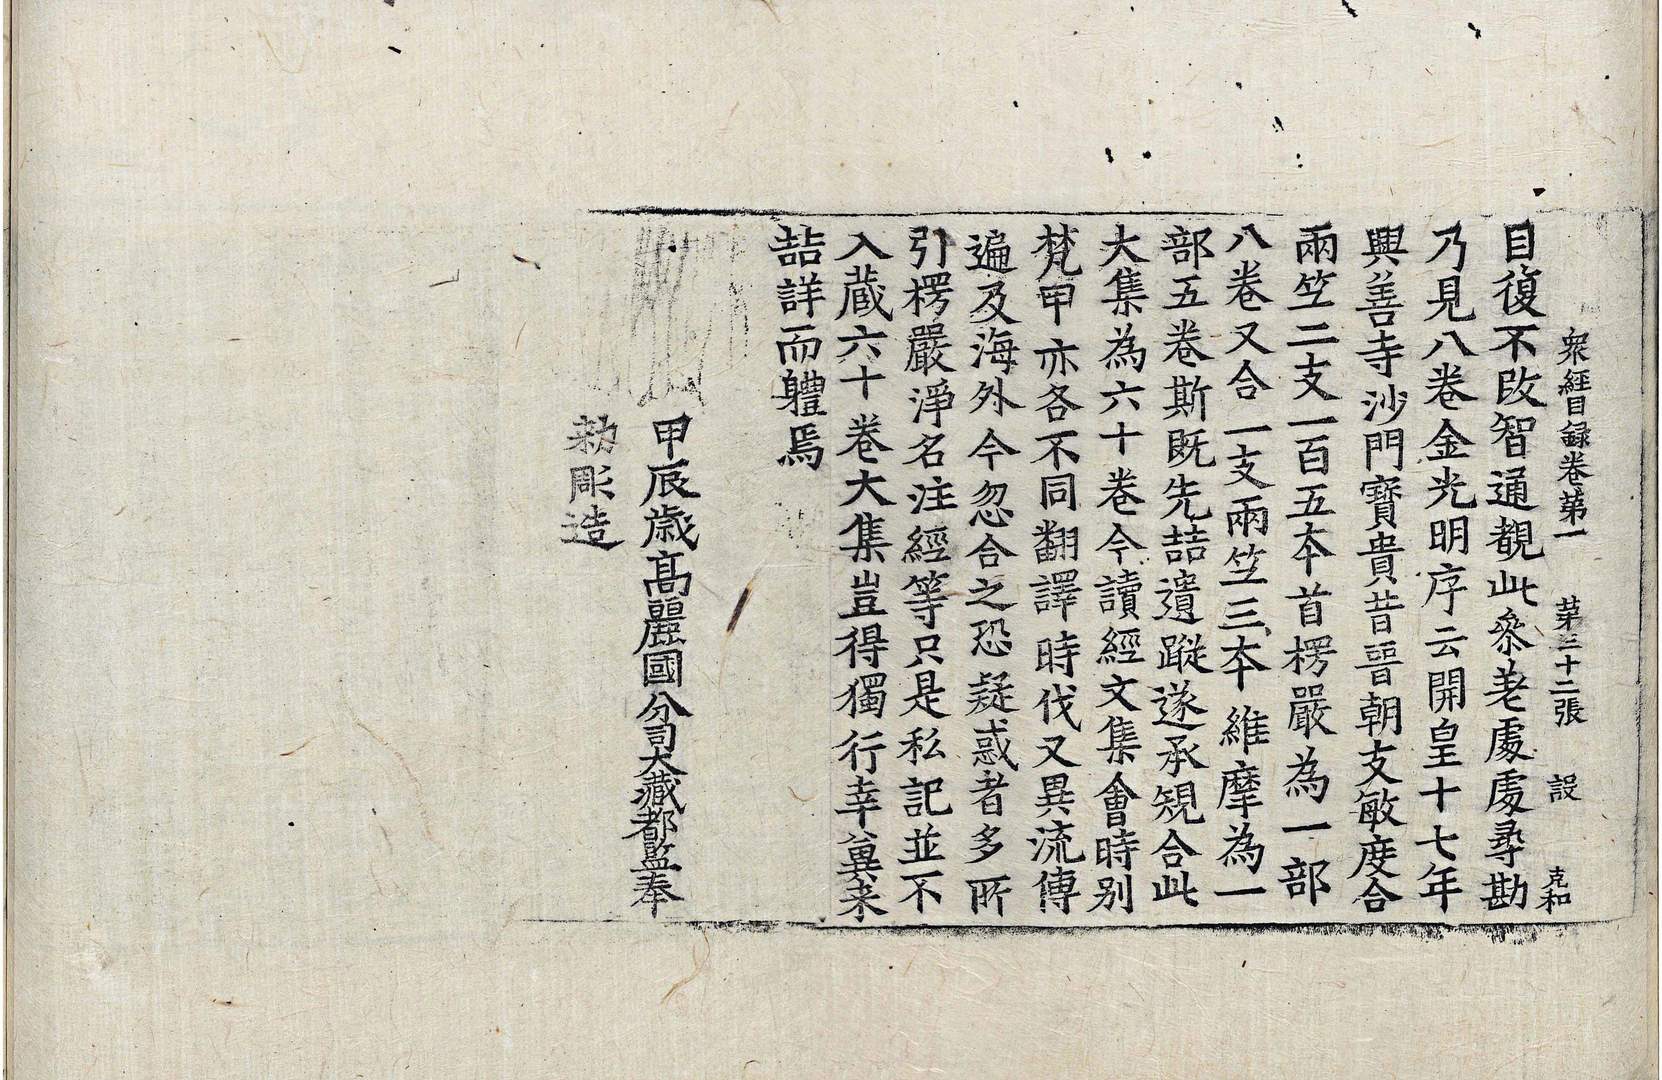 衆經目録卷第一 苐三十二張 設 克和
目復不改智通覩此叅差處處尋勘
乃見八卷金光明序云開皇十七年
興善寺沙門寶貴昔晉朝支敏度合
兩竺二支一百五夲首楞嚴為一部
八卷又合一支兩竺三夲維摩為一
部五卷斯旣先喆遺蹤遂承規合此
大集為六十卷今讀經文集會時別
梵甲亦各不同翻譯時伐又異流傳
遍及海外今忽合之恐疑惑者多所
引楞嚴淨名注經等只是私記並不
入蔵六十卷大集豈得獨行幸兾来
喆詳而軆焉
甲辰歲髙麗國分司大藏都監奉
勑彫造